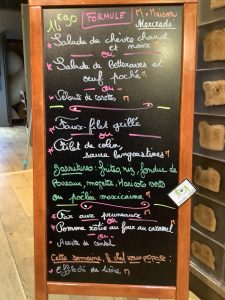 11€90 FORMULE M = Maison
Mercredi
Salade de chèvre chaud
et noix M
ou
Salade de betteraves et
oeuf poché M
ou
Velouté de carottes M
Faux-filet grillé
ou
Filet de colin,
sauce langoustines M
Garnitures: frites, riz, fondue de
Poireaux, mogette, Haricots verts
ou poêlée mexicaine
aux pruneaux M
ou
Pomme rôtie au four au caramel
ou
Assiette de Cantal
Cette semaine, le chef vous propose: